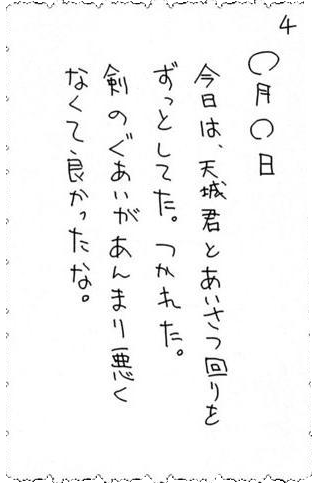 4
〇月〇日
今日は、天城君とあいさつ回りを
ずっとしてた。つかれた。
剣のぐあいがあんまり悪く
なくて良かったな。